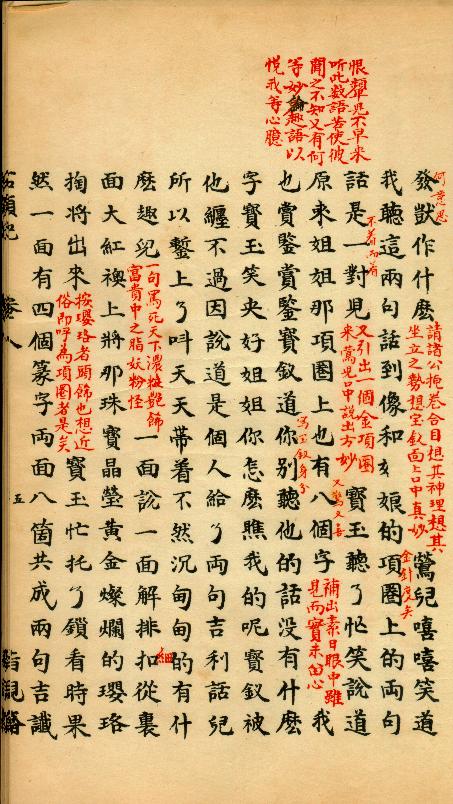 恨顰兒不早来
聽此数語若使彼
聞之不知又有何
等妙論趣語以
悅我等心臆
發獃作什麽
請諸公掩卷合目想其神理想其
坐立之勢想寳釵面上口中真妙
鶯兒嘻嘻笑道
我聽這兩句話到像和姑娘的項圈上的兩句
金針度矣
話是一對兒
又引出一個金項圈
來鶯兒口中說出方妙
寳玉聽了忙笑說道
原來姐姐那項圈上也有八個字
又驚又喜
補出素日眼中雖
見而實未留心
我
也賞鑒賞鑒寳釵道你别聽他的話没有什麽
寫寳釵身分
字寳玉笑央好姐姐你怎麽瞧我的呢寳釵被
他纏不過因說道是個人給了兩句吉利話兒
所以鏨上了呌天天帶着不然沉甸甸的有什
麽趣兒
一句罵死天下濃粧艷飾
富貴中之脂妖粉怪
一面說一面解排扣從裏
細
面大紅襖上將那珠寳晶瑩黄金燦爛的瓔珞
掏將出來
按瓔珞者頭飾也想近
俗即呼為項圈者是矣
寳玉忙托了鎖看時果
然一面有四個篆字兩面八箇共成兩句吉讖
五